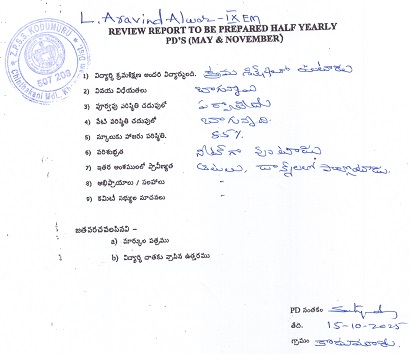 L. Aravind Alwar - IX EM
REVIEW REPORT TO BE PREPARED HALF YEARLY
PD'S (MAY & NOVEMBER)
Z.P.S.S. KODUMURU
Chinthakani Mdl.
507 208
1) విద్యార్థి క్రమశిక్షణ అందరి విద్యార్థులలో. క్రమ శిక్షణలో ఉంటాడు
2) వినయ విధేయతలు బాగున్నాయి
3) పూర్వపు పరిస్థితి చదువులో
4) నేటి పరిస్థితి చదువులో బాగున్నది.
5) స్కూలుకు హాజరు పరిస్థితి. 85%
6) పరిశుభ్రత నీట్ గా వుంటాడు
7) ఇతర అంశములలో ప్రావీణ్యత ఆటలు, డాన్స్ లలో పాల్గొంటాడు.
8) అభిప్రాయాలు / సలహాలు -
9) కమిటీ సభ్యుల సూచనలు -
జతపరచవలసినవి -
a) మార్కుల పత్రము
b) విద్యార్థి దాతకు వ్రాసిన ఉత్తరము
PD సంతకం
తేది. 15-10-2025
గ్రామం కొదుమూరు.